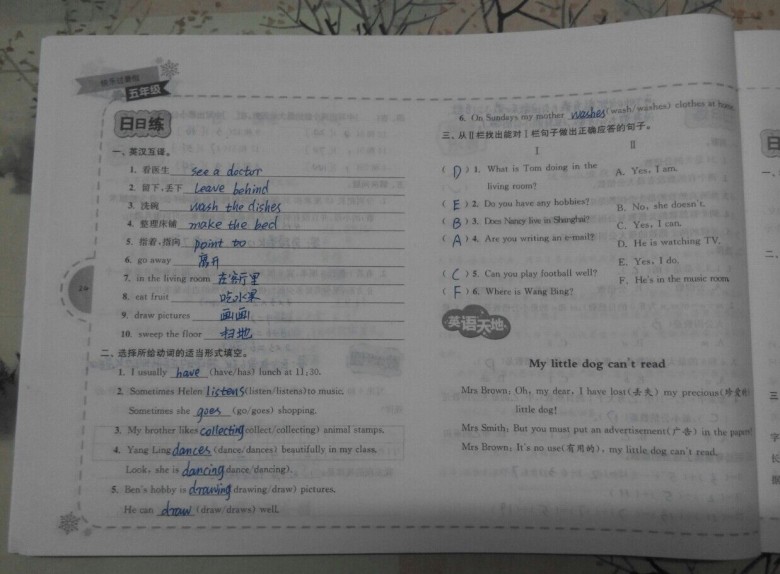 快乐过暑假
五年级
日日练
一、英汉互译。
1. 看医生 see a doctor
2. 留下,丢下 leave behind
3. 洗碗 wash the dishes
4. 整理床铺 make the bed
5. 指着,指向 point to
6. go away 离开
7. in the living room 在客厅里
8. eat fruit 吃水果
9. draw pictures 画画
10. sweep the floor 扫地
二、选择所给动词的适当形式填空。
1. I usually have (have/has) lunch at 11:30.
2. Sometimes Helen listens (listen/listens) to music.
Sometimes she goes (go/goes) shopping.
3. My brother likes collecting collect/collecting) animal stamps.
4. Yang Ling dances (dance/dances) beautifully in my class.
Look, she is dancing dance/dancing).
5. Ben's hobby is drawing drawing/draw) pictures.
He can draw (draw/draws) well.
6. On Sundays my mother washes (wash/washes) clothes at home.
三、从Ⅱ栏找出能对Ⅰ栏句子做出正确应答的句子。
Ⅰ Ⅱ
( D ) 1. What is Tom doing in the living room? A. Yes, I am.
( E ) 2. Do you have any hobbies? B. No, she doesn't.
( B ) 3. Does Nancy live in Shanghai? C. Yes, I can.
( A ) 4. Are you writing an e-mail? D. He is watching TV.
E. Yes, I do.
( C ) 5. Can you play football well? F. He's in the music room.
( F ) 6. Where is Wang Bing?
英语天地
My little dog can't read
Mrs Brown: Oh, my dear, I have lost(丢失) my precious(珍爱的)
little dog!
Mrs Smith: But you must put an advertisement(广告) in the paper!
Mrs Brown: It's no use(有用的), my little dog can't read.